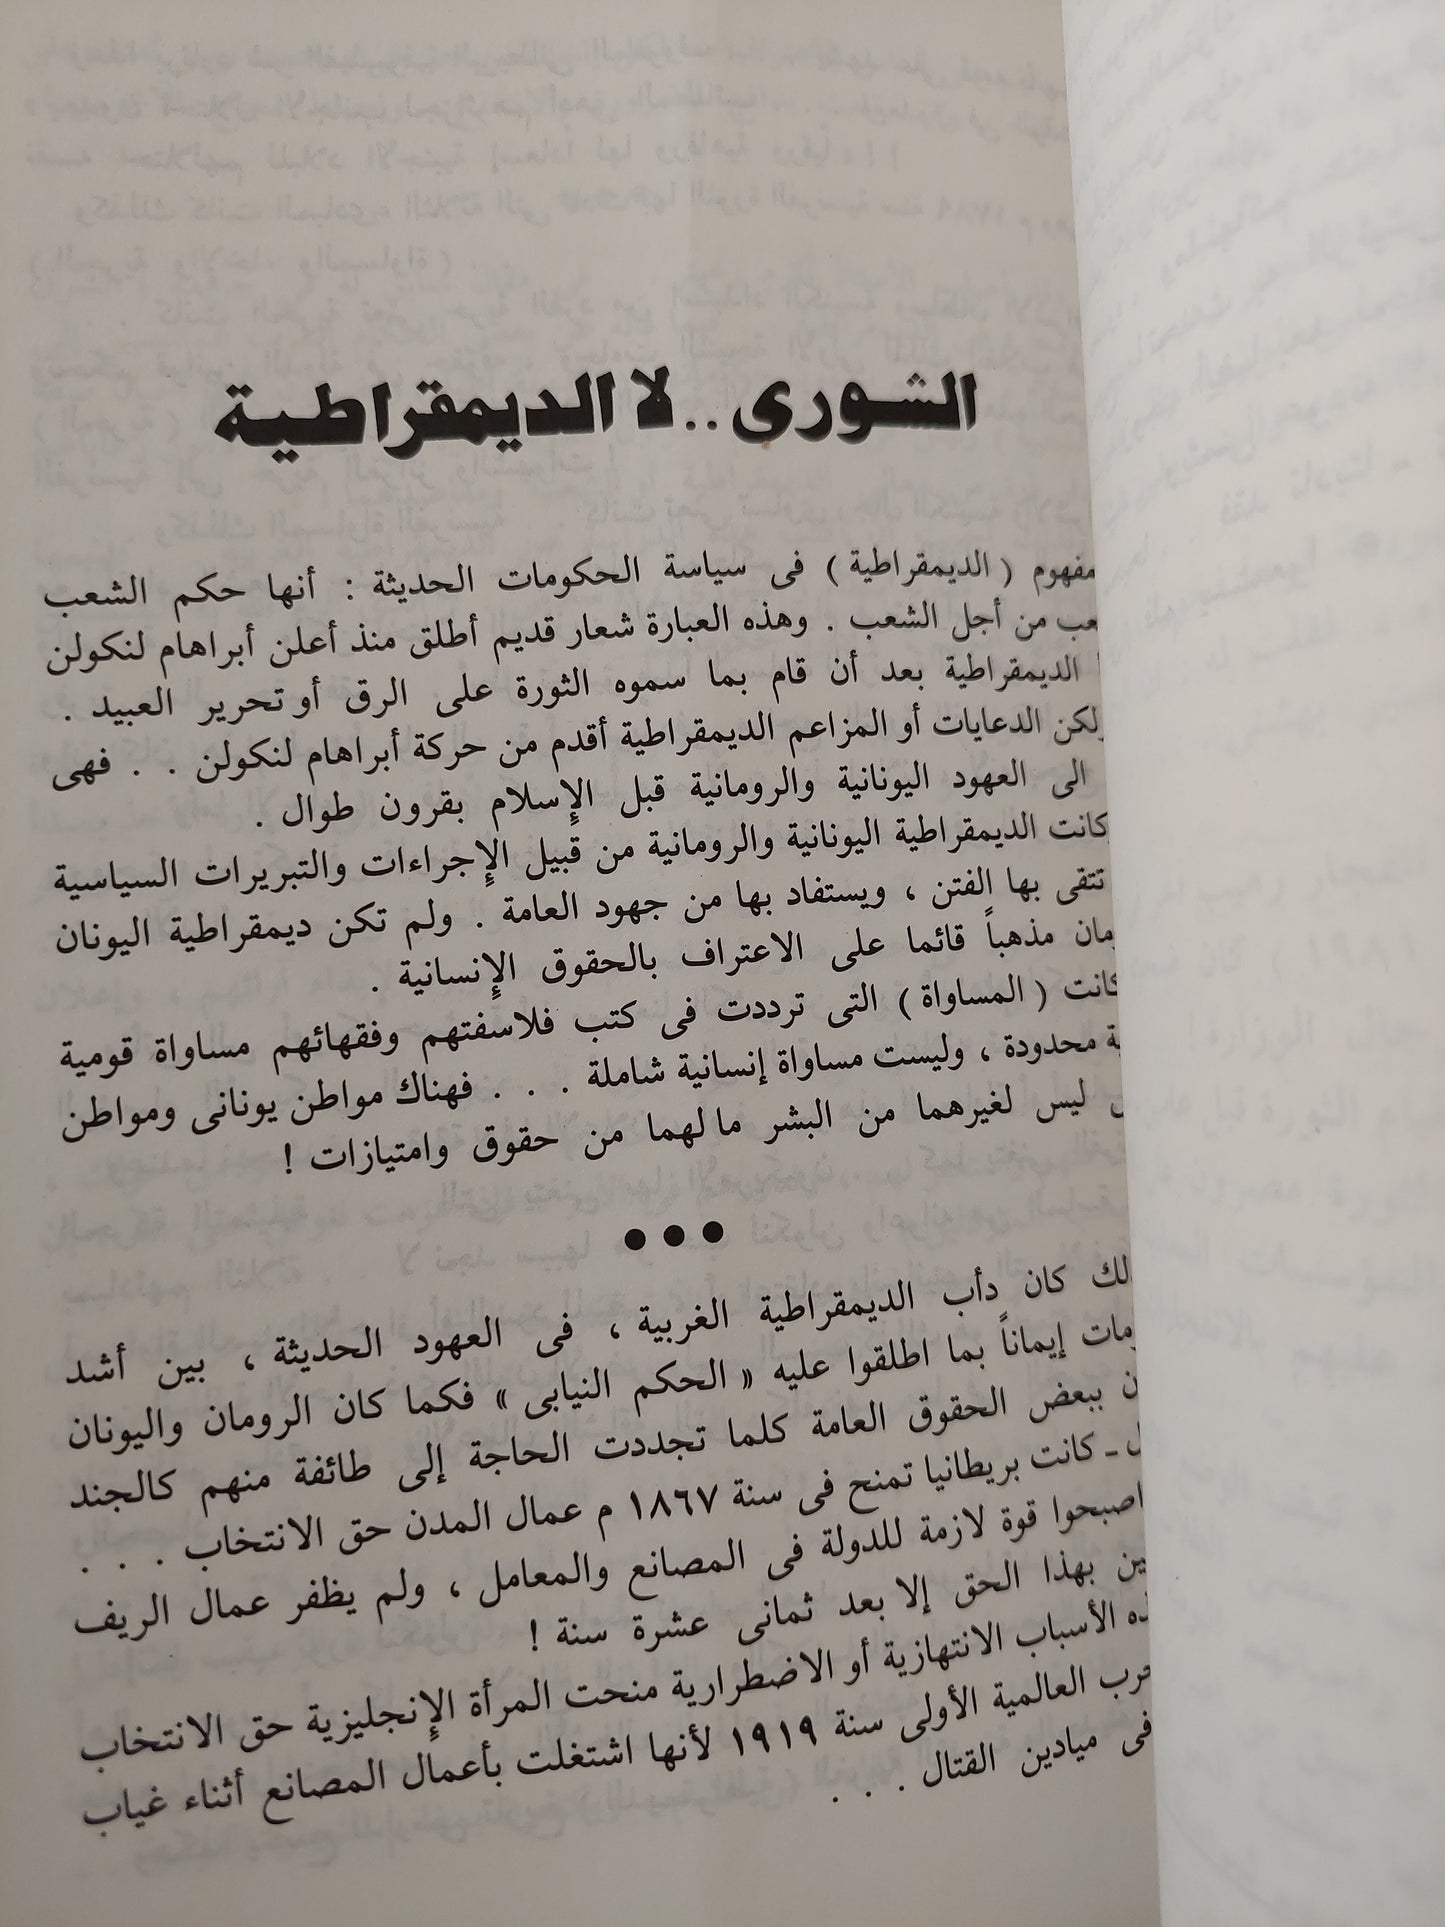 الشورى .. لا الديمقراطية
مفهوم ( الديمقراطية ) فى سياسة الحكومات الحديثة : أنها حكم الشعب
من أجل الشعب . وهذه العبارة شعار قديم أطلق منذ أعلن أبراهام لنكولن
الديمقراطية بعد أن قام بما سموه الثورة على الرق أو تحرير العبيد .
لكن الدعايات أو المزاعم الديمقراطية أقدم من حركة أبراهام لنكولن . . فهى
الى العهود اليونانية والرومانية قبل الإسلام بقرون طوال .
كانت الديمقراطية اليونانية والرومانية من قبيل الإجراءات والتبريرات السياسية
تتقى بها الفتن ، ويستفاد بها من جهود العامة . ولم تكن ديمقراطية اليونان
مذهباً قائما على الاعتراف بالحقوق الإنسانية .
كانت ( المساواة ) التى ترددت فى كتب فلاسفتهم وفقهائهم مساواة قومية
محدودة ، وليست مساواة إنسانية شاملة . . . فهناك مواطن يونانى ومواطن
ليس لغيرهما من البشر ما لهما من حقوق وامتيازات !
● ● ●
كان دأب الديمقراطية الغربية ، فى العهود الحديثة ، بين أشد
إيماناً بما اطلقوا عليه « الحكم النيابى » فكما كان الرومان واليونان
ببعض الحقوق العامة كلما تجددت الحاجة إلى طائفة منهم كالجند
ـ كانت بريطانيا تمنح فى سنة ١٨٦٧ م عمال المدن حق الانتخاب . . .
اصبحوا قوة لازمة للدولة فى المصانع والمعامل ، ولم يظفر عمال الريف
بهذا الحق إلا بعد ثمانى عشرة سنة !
الأسباب الانتهازية أو الاضطرارية منحت المرأة الإنجليزية حق الانتخاب
العالمية الأولى سنة ١٩١٩ لأنها اشتغلت بأعمال المصانع أثناء غياب
فى ميادين القتال . . .